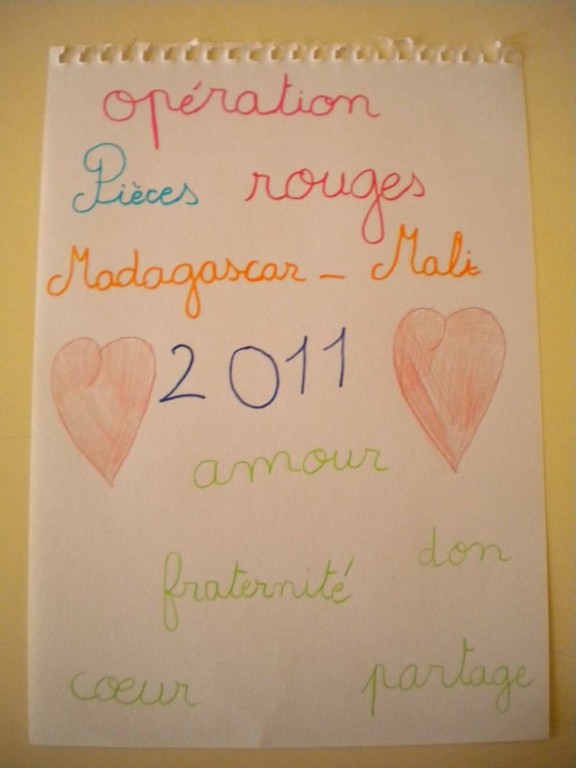 opération
Pièces rouges
Madagascar - Mali
2011
amour
don
fraternité
coeur partage